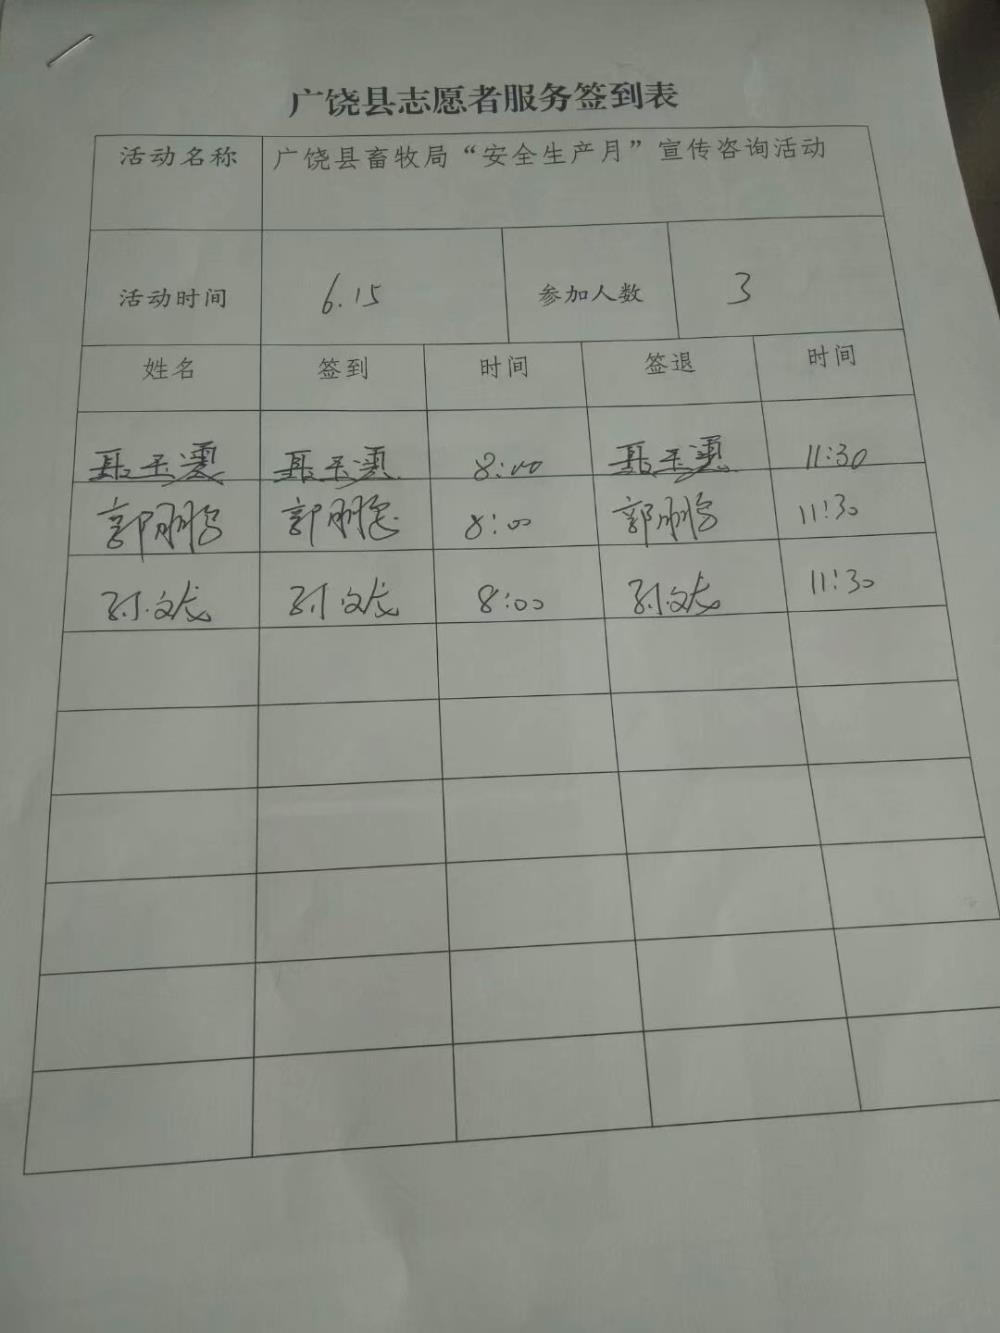 广饶县志愿者服务签到表
活动名称 广饶县畜牧局“安全生产月”宣传咨询活动
活动时间 6.15 参加人数 3
姓名 签到 时间 签退 时间
聂玉 聂玉 8:00 聂玉 11:30
郭鹏 郭鹏 8:00 郭鹏 11:30
孙文龙 孙文龙 8:00 孙文龙 11:30